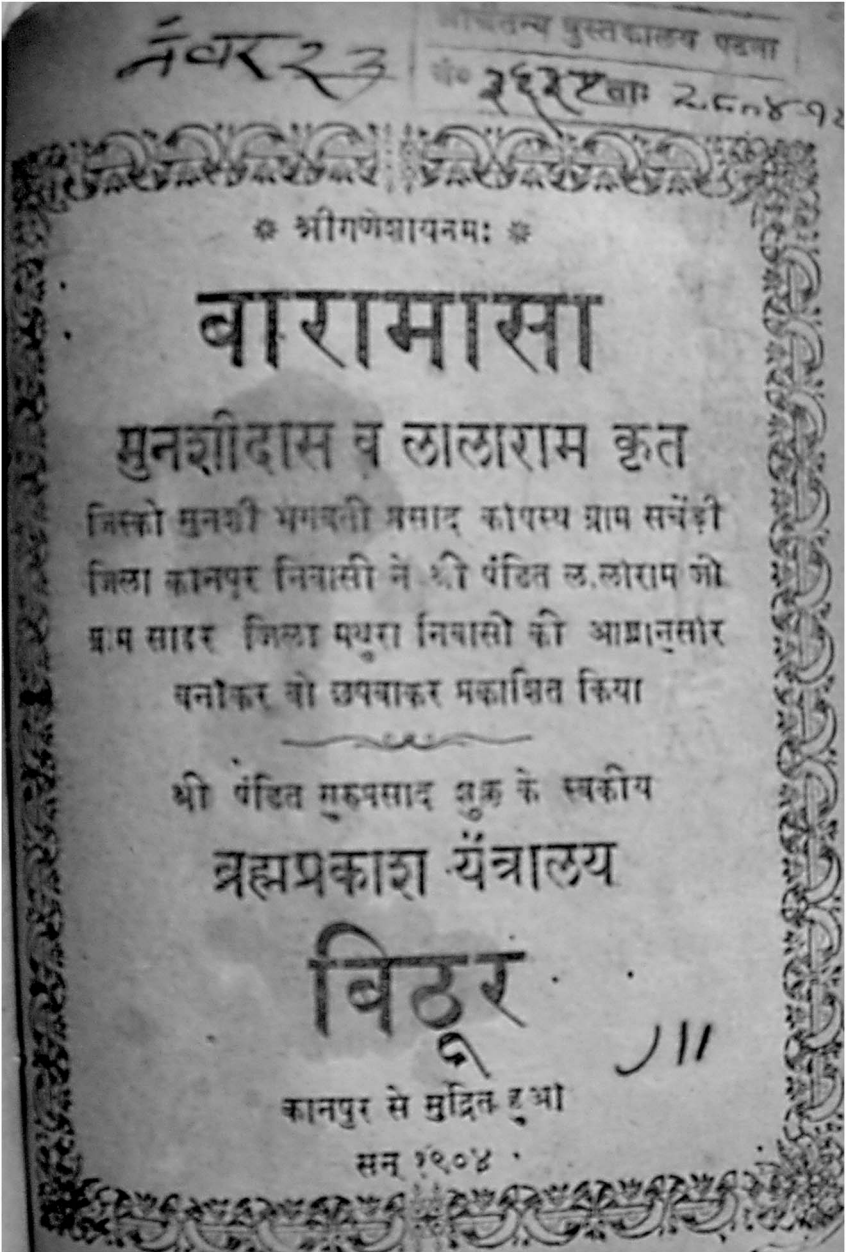 नंबर २३
श्रीचैतन्य पुस्तकालय पटना
नं०
* श्रीगणेशायनमः *
वारामासा
मुनशीदास व लालाराम कृत
जिस्को मुनशी भगवती प्रसाद कायस्थ ग्राम सचेंड़ी
जिला कानपुर निवासी ने श्री पंडित लालाराम जी
ग्राम सादर जिला मथुरा निवासी की आज्ञानुसार
बनाकर वो छपवाकर प्रकाशित किया
श्री पंडित गुरुप्रसाद शुक्ल के स्वकीय
ब्रह्मप्रकाश यंत्रालय
बिठूर
)॥
कानपुर से मुद्रित हुआ
सन् १९०४